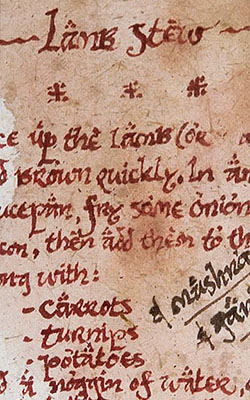 Lamb Stew
ce up the lamb (or
d brown quickly. In an
ucepan, fry some onion
con, then add them to th
ong with:
- carrots
- turnips
- potatoes
& mushro
& gar
d a noggin of water,